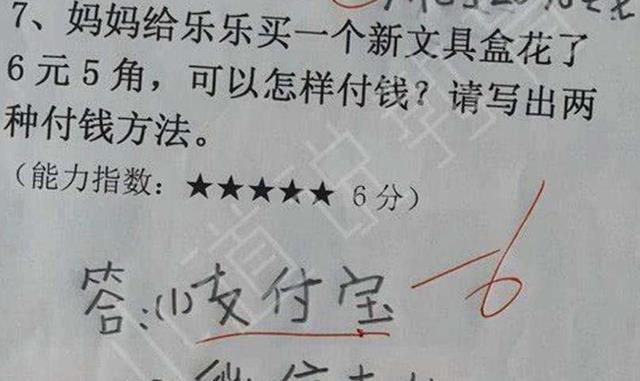 7、妈妈给乐乐买一个新文具盒花了
6元5角，可以怎样付钱？请写出两
种付钱方法。
（能力指数：★★★★★ 6分）
答:(1)支付宝 -6
微信支付